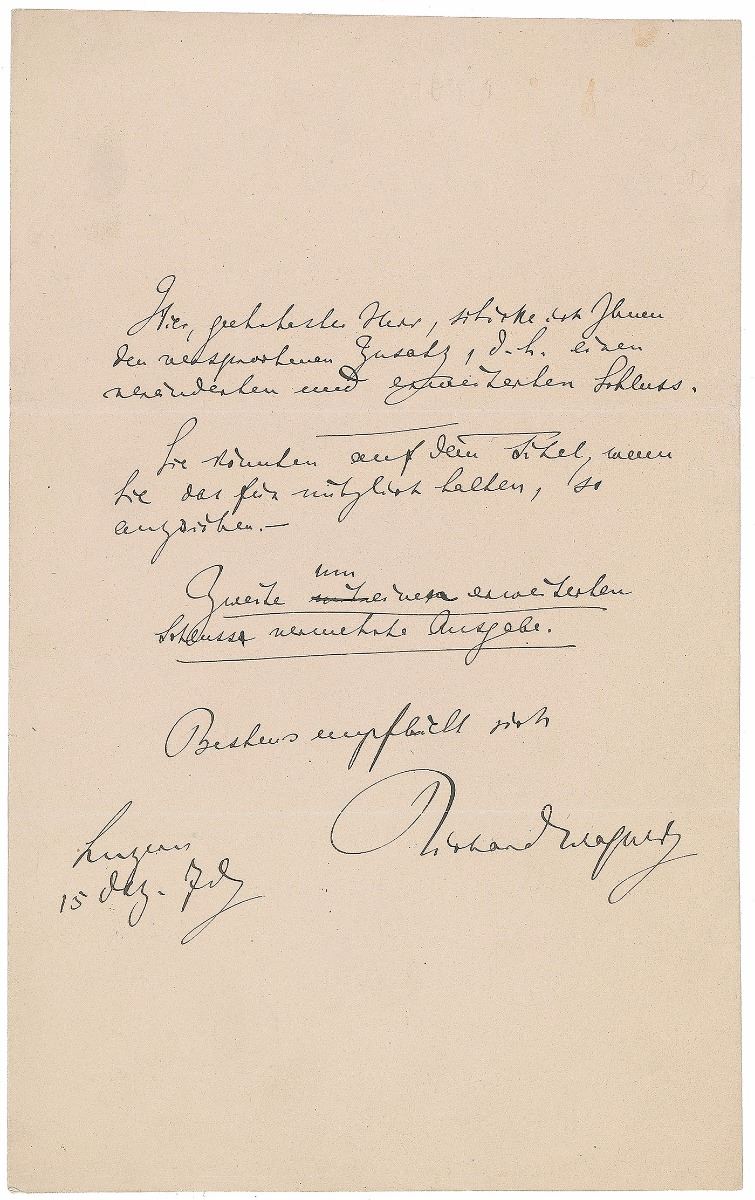 Hier, geehrtester Herr, schicke ich Ihnen
den versprochenen Zusatz, d. h. einen
veränderten und erweiterten Schluss.
Sie könnten auf dem Titel, wenn
Sie das für nützlich halten, so
anziehen.—
um
Zweite mit einen erweiterten
Schluss vermehrte Ausgabe.
Bestens empfiehlt sich
Richard Wagner
Luzern
15 Dez.